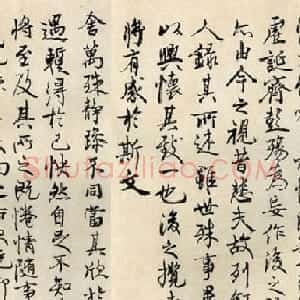 虛誕齊彭殤為妄作後之
亦由今之視昔悲夫故列
人錄其所述雖世殊事異
以興懷其致一也後之攬
將有感於斯文
舍萬殊靜躁不同當其欣於
遇蹔得於己怏然自足不知
將至及其所既惓情隨事
Shufaziliao.com